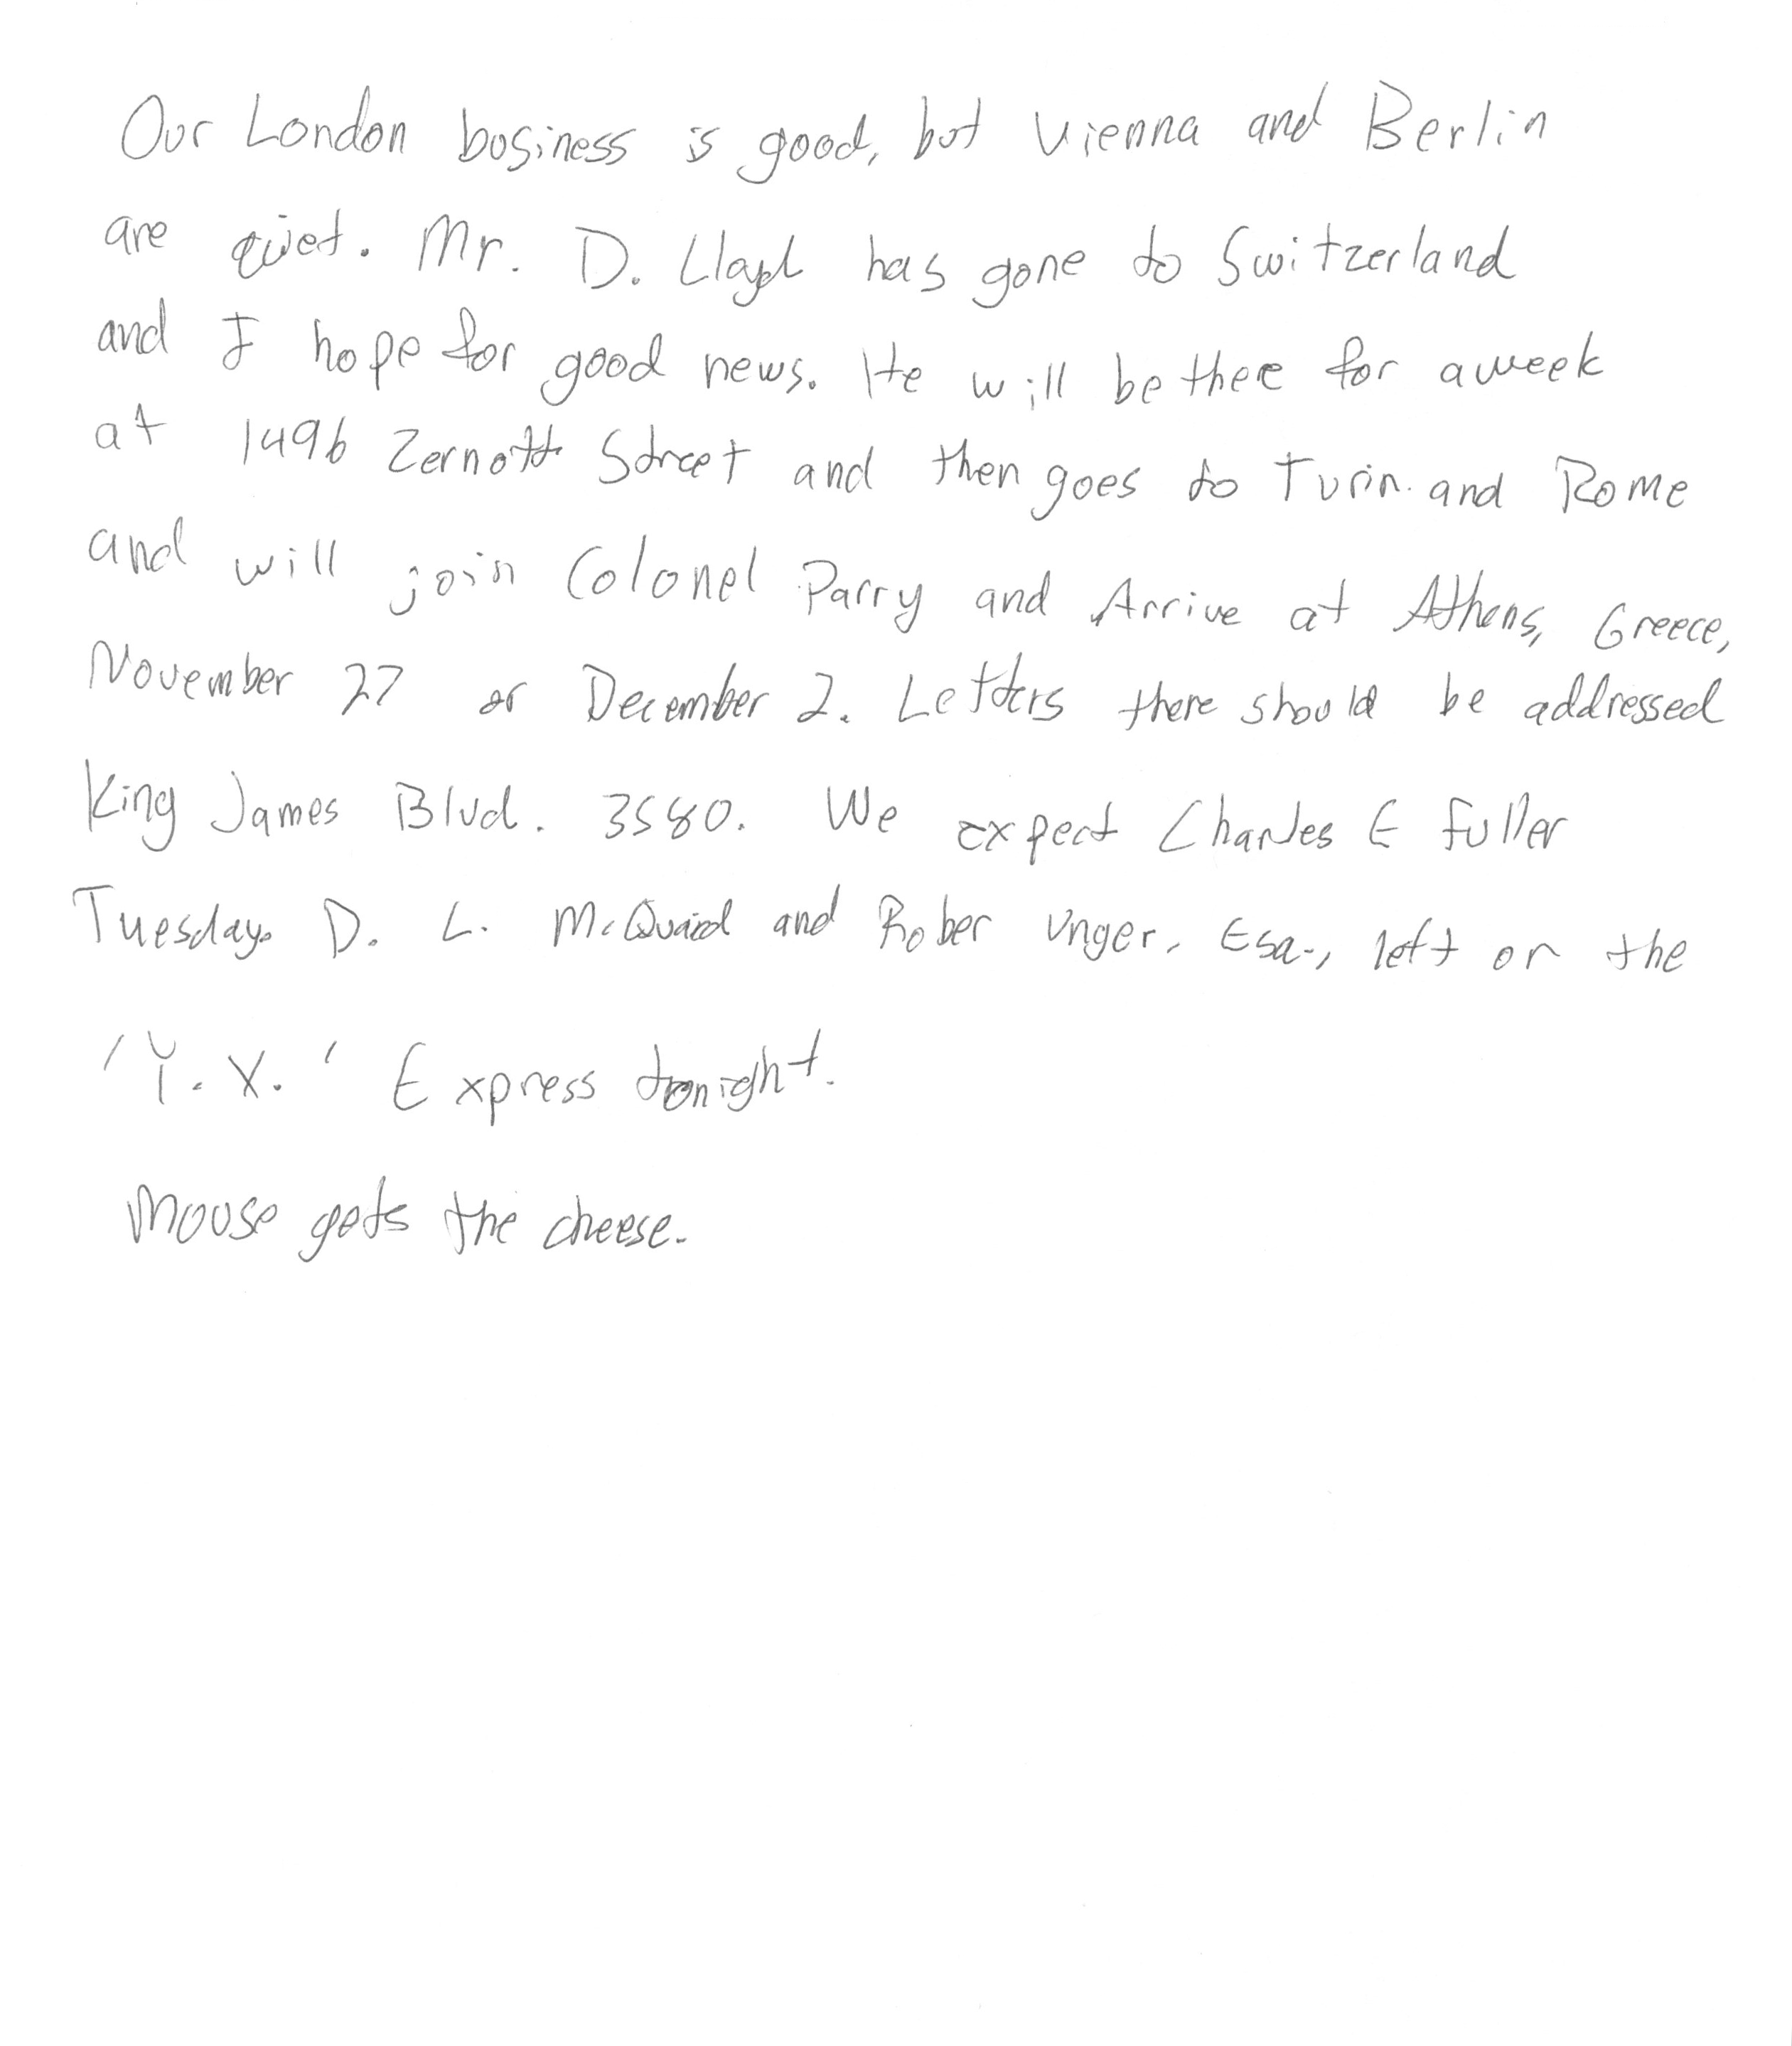 Our London business is good, but Vienna and Berlin
are quiet. Mr. D. Lloyd has gone to Switzerland
and I hope for good news. He will be there for a week
at 1496 Zernott Street and then goes to Turin and Rome
and will join Colonel Parry and Arrive at Athens, Greece,
November 27 or December 2. Letters there should be addressed
King James Blvd. 3580. We expect Charles E Fuller
Tuesday. D. L. McQuaid and Rober Unger, Esq., left on the
'Y. X.' Express tonight.
Mouse gets the cheese.